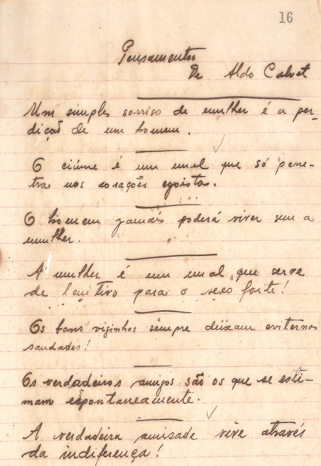 16
Pensamentos
De Aldo Calvet
Um simples sorriso de mulher é a per-
dição de um homem.
O ciúme é um mal que só pene-
tra nos corações egoistas.
O homem jamais poderá viver sem a
mulher.
A mulher é um mal que serve
de lenitivo para o sexo forte!
Os bons vizinhos sempre deixam eviternas
saudades!
Os verdadeiros amigos são os que se esti-
mam espontaneamente.
A verdadeira amisade vive através
da indiferença!